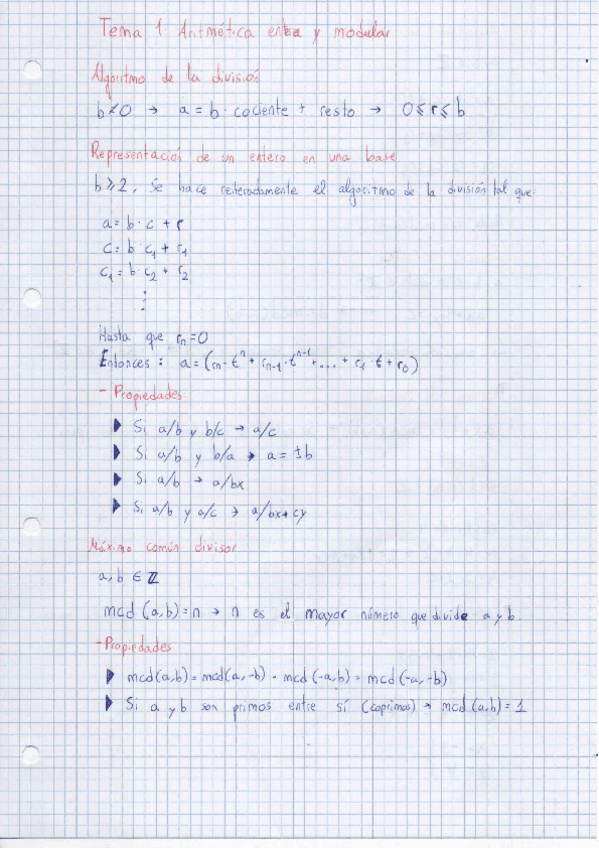 Tema 1 Aritmética entera y modular
Algoritmo de la división
b≠0 → a = b · cociente + resto → 0 ≤ r ≤ b
Representación de un entero en una base
b ≥ 2, se hace reiteradamente el algoritmo de la división tal que:
a = b · c + r
c = b · c₁ + r₁
c₁ = b · c₂ + r₂
⋮
Hasta que rₙ = 0
Entonces : a = (rₙ · tⁿ + rₙ₋₁ · tⁿ⁻¹ + ... + r₁ · t + r₀)
- Propiedades
▶ Si a/b y b/c → a/c
▶ Si a/b y b/a → a = ±b
▶ Si a/b → a/bx
▶ Si a/b y a/c → a/bx+cy
Máximo común divisor
a, b ∈ ℤ
mcd (a,b) = n → n es el mayor número que divide a y b.
- Propiedades
▶ mcd(a,b) = mcd(a,-b) = mcd(-a,b) = mcd(-a,-b)
▶ Si a y b son primos entre sí (coprimos) → mcd (a,b) = 1